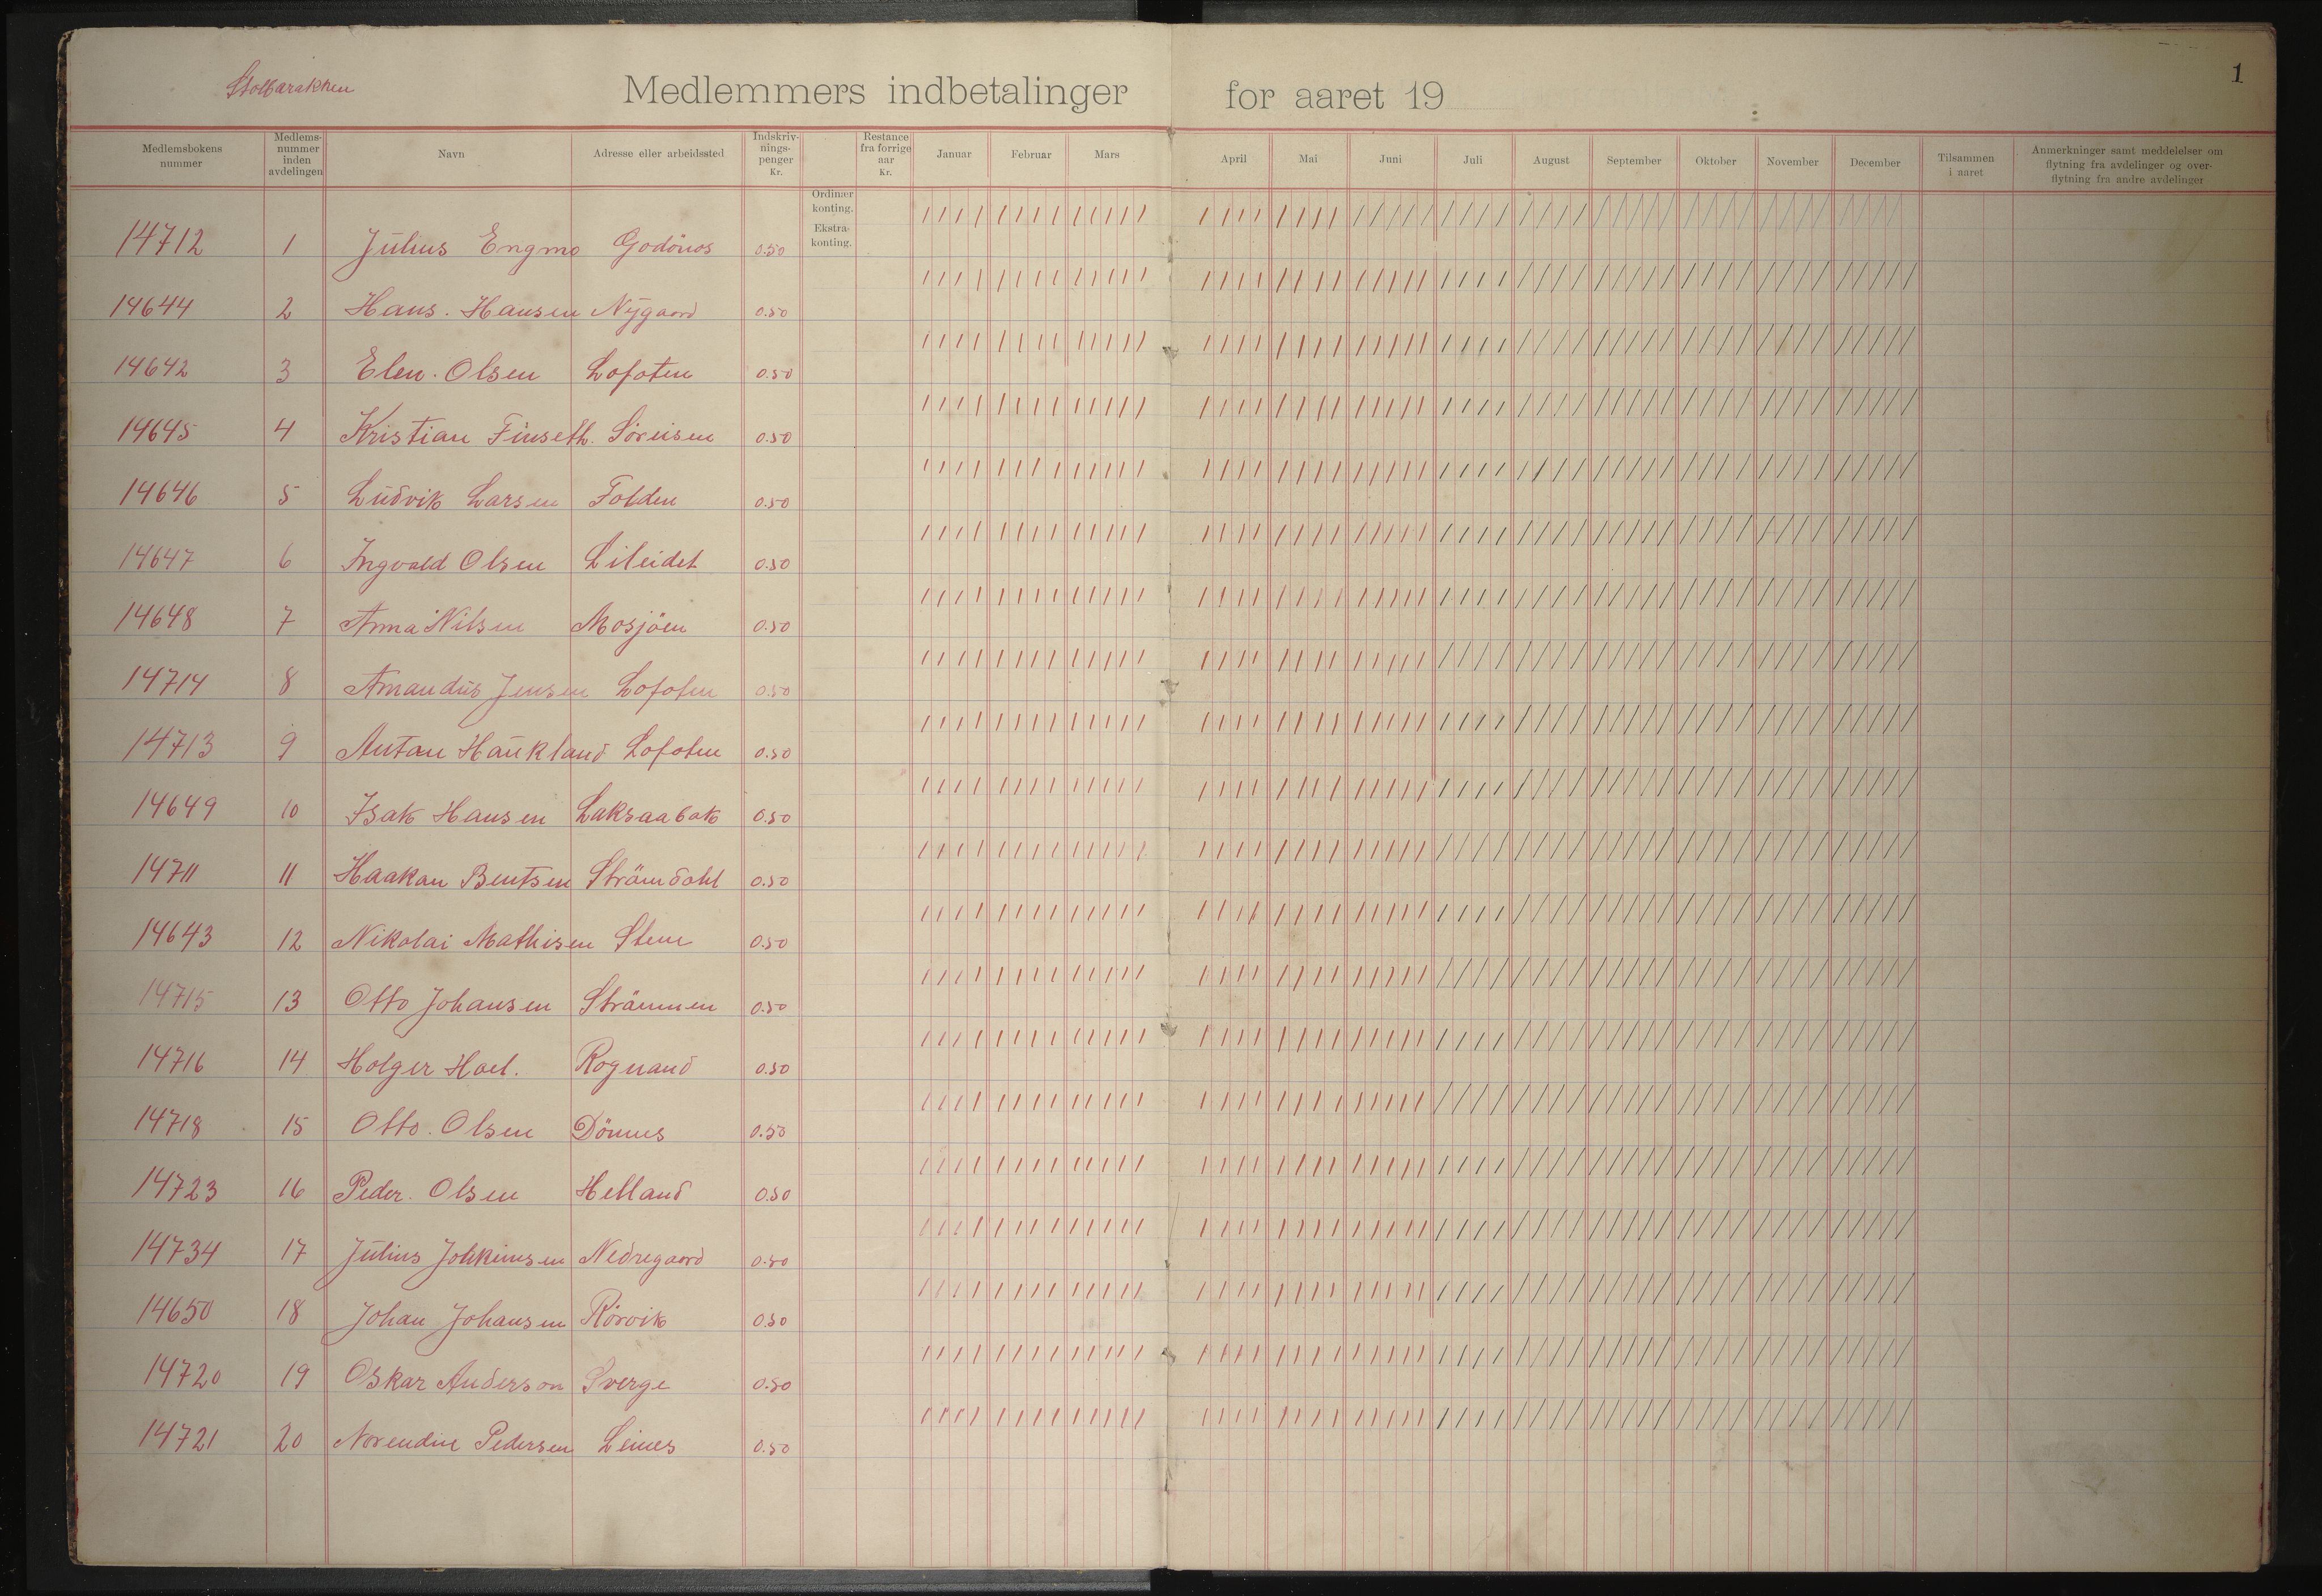 Stolbarakken
Medlemmers indbetalinger for aaret 19
1
Medlemsbokens nummer
Medlems-nummer inden avdelingen
Navn
Adresse eller arbeidssted
Indskriv-nings-penger Kr.
Restance fra forrige aar Kr.
Januar Februar Mars April Mai Juni Juli August September Oktober November December
Tilsammen i aaret
Anmerkninger samt meddelelser om flytning fra avdelinger og over-flytning fra andre avdelinger
Ordinær konting.
Ekstra-konting.
14712 1 Julius Engmo Godönos 0.50
14644 2 Hans. Hansen Nygaard 0.50
14642 3 Elen. Olsen Lofoten 0.50
14645 4 Kristian Finseth. Söreisen 0.50
14646 5 Ludvik Larsen Folden 0.50
14647 6 Ingvald Olsen Lileidet 0.50
14648 7 Anna Nilsen Mosjöen 0.50
14714 8 Amandus Jensen Lofoten 0.50
14713 9 Antan Haukland Lofoten 0.50
14649 10 Isak Hansen Laksaabak 0.50
14711 11 Haakan Bentsen Strämdahl 0.50
14643 12 Nikolai Mathisen Stene 0.50
14715 13 Otto Johansen Strämmen 0.50
14716 14 Holger Hoel. Rognand 0.50
14718 15 Otto. Olsen Dönnes 0.50
14723 16 Peder. Olsen Helland 0.50
14734 17 Julius Nedregaard 0.50
14650 18 Johan Johansen Rörvik 0.50
14720 19 Oskar Anderson Sverge 0.50
14721 20 Norendine Pedersen Leines 0.50